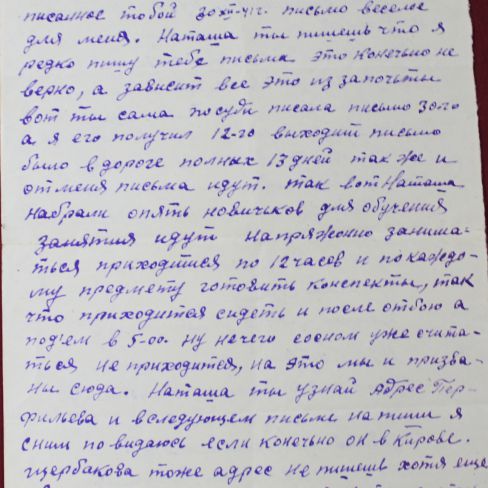 писанное тобой 30 XII-41г. письмо веселое
для меня. Наташа ты пишешь что я
редко пишу тебе письма это конечьно не
верно, а зависит все это из започьты
вот ты сама посуди писала письмо 30го
а я его получил 12-го выходит письмо
было в дороге полных 13 дней так же и
от меня письма идут. так вот Наташа
набрали опять новичьков для обучения
занятия идут напряжонно занима-
ться приходится по 12 часов и по каждо-
му предмету готовить конспекты, так
что приходится сидеть и после отбою а
под'ем в 5-00. ну нечего со сном уже счита-
ться не приходится, на это мы и призва-
ны сюда. Наташа ты узнай адрес Пер-
фильева и в следующем письме напиши я
сним повидаюсь если конечьно он в Кирове.
Щербакова тоже адрес не пишешь хотя еще